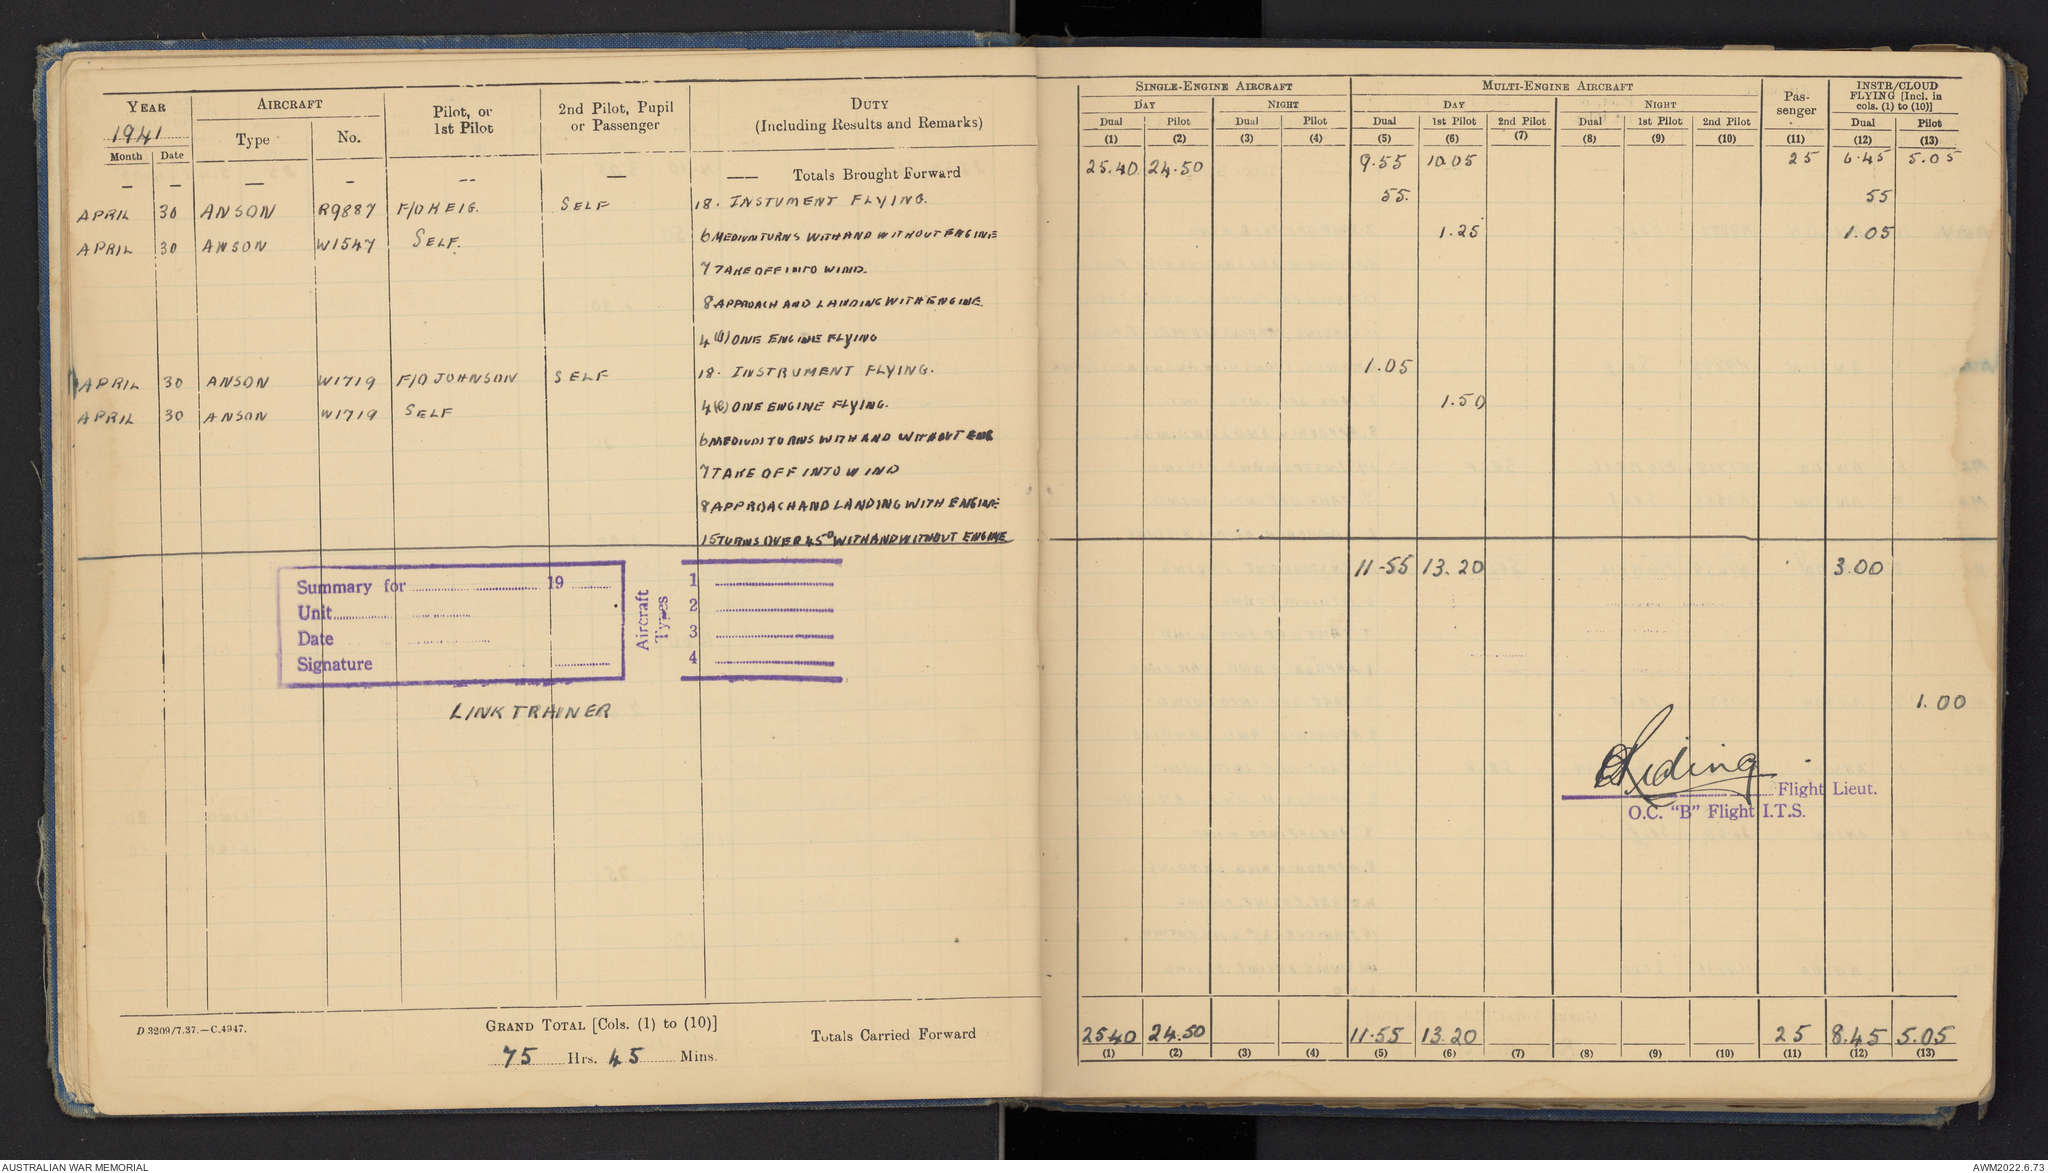 YEAR AIRCRAFT Pilot, or 1st Pilot 2nd Pilot, Pupil or Passenger DUTY (Including Results and Remarks) SINGLE-ENGINE AIRCRAFT MULTI-ENGINE AIRCRAFT Pas-senger INSTR/CLOUD FLYING [Incl. in cols. (1) to (10)]
1941 Type No. DAY NIGHT DAY NIGHT
Month Date Dual Pilot Dual Pilot Dual 1st Pilot 2nd Pilot Dual 1st Pilot 2nd Pilot Dual Pilot
(1) (2) (3) (4) (5) (6) (7) (8) (9) (10) (11) (12) (13)
— — — — -- — —— Totals Brought Forward 25.40 24.50 9.55 10.05 25 6.45 5.05
APRIL 30 ANSON R9887 F/O KEIG. SELF 18. INSTUMENT FLYING. 55. 55
APRIL 30 ANSON W1547 SELF. 6 MEDIUM TURNS WITH AND WITHOUT ENGINE 1.25 1.05
7 TAKE OFF INTO WIND.
8 APPROACH AND LANDING WITH ENGINE.
4 ONE ENGINE FLYING
APRIL 30 ANSON W1719 F/O JOHNSON SELF 18. INSTRUMENT FLYING. 1.05
APRIL 30 ANSON W1719 SELF 4 ONE ENGINE FLYING. 1.50
6 MEDIUM TURNS WITH AND WITHOUT ENG
7 TAKE OFF INTO WIND
8 APPROACH AND LANDING WITH ENGINE
15 TURNS OVER 45° WITH AND WITHOUT ENGINE
11-55 13.20 3.00
Summary for 19
Unit
Date
Signature
Aircraft Types
1
2
3
4
LINK TRAINER 1.00
Riding
Flight Lieut.
O.C. "B" Flight I.T.S.
D.3209/7.37.—C.4947.
GRAND TOTAL [Cols. (1) to (10)]
75 Hrs. 45 Mins.
Totals Carried Forward 25.40 24.50 11.55 13.20 25 8.45 5.05
(1) (2) (3) (4) (5) (6) (7) (8) (9) (10) (11) (12) (13)
AUSTRALIAN WAR MEMORIAL AWM2022.6.73